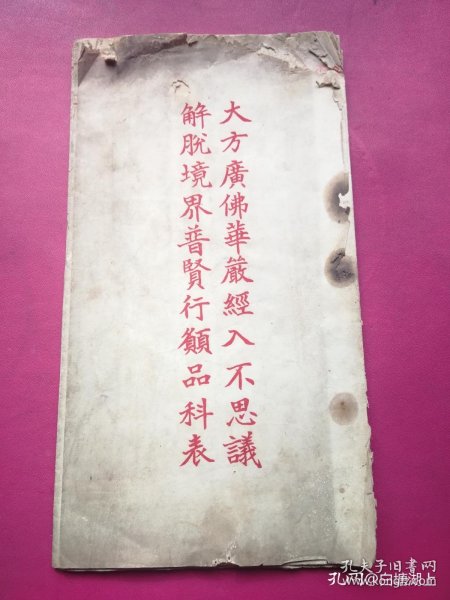 大方廣佛華嚴經入不思議
解脫境界普賢行願品科表
孔夫子旧书网
孔网@白塘湖上